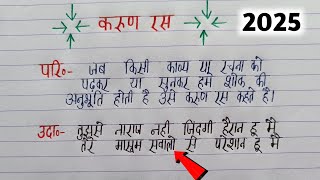 करुण रस
2025
परि०- जब किसी काव्य या रचना को
पढ़कर या सुनकर हमें शोक की
अनुभूति होती है उसे करुण रस कहते है।
उदा०- तुझसे नाराज नहीं जिंदगी हैरान हू मैं
तेरे मासूम सवालो से परेशान हू मैं